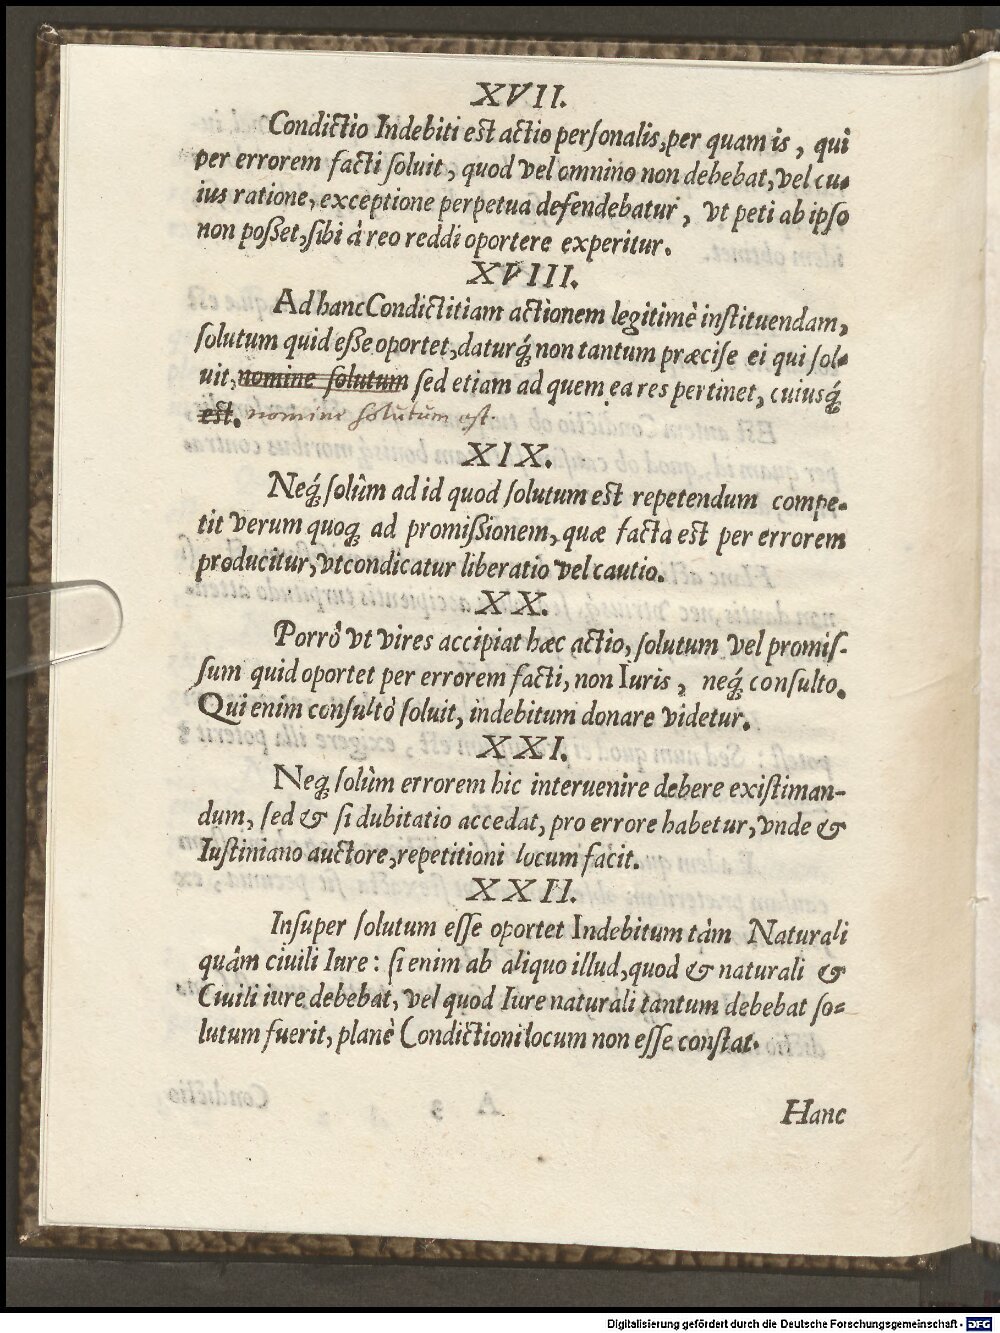 XVII.
Condictio Indebiti est actio personalis, per quam is, qui
per errorem facti soluit, quod vel omnino non debebat, vel cu-
ius ratione, exceptione perpetua defendebatur, vt peti ab ipso
non posset, sibi à reo reddi oportere experitur.
XVIII.
Ad hanc Condictitiam actionem legitimè instituendam,
solutum quid esse oportet, daturq́; non tantum præcise ei qui sol-
uit, nomine solutum sed etiam ad quem ea res pertinet, cuiusq́;
est. nomine solutum est.
XIX.
Neq́; solùm ad id quod solutum est repetendum compe-
tit verum quoq; ad promissionem, quæ facta est per errorem
producitur, vt condicatur liberatio vel cautio.
XX.
Porrò vt vires accipiat hæc actio, solutum vel promis-
sum quid oportet per errorem facti, non Iuris, neq́; consulto.
Qui enim consultò soluit, indebitum donare videtur.
XXI.
Neq; solùm errorem hic interuenire debere existiman-
dum, sed & si dubitatio accedat, pro errore habetur, vnde &
Iustiniano auctore, repetitioni locum facit.
XXII.
Insuper solutum esse oportet Indebitum tàm Naturali
quàm ciuili Iure: si enim ab aliquo illud, quod & naturali &
Ciuili iure debebat, vel quod Iure naturali tantum debebat so-
lutum fuerit, planè Condictioni locum non esse constat.
Hanc
Digitalisierung gefördert durch die Deutsche Forschungsgemeinschaft - DFG